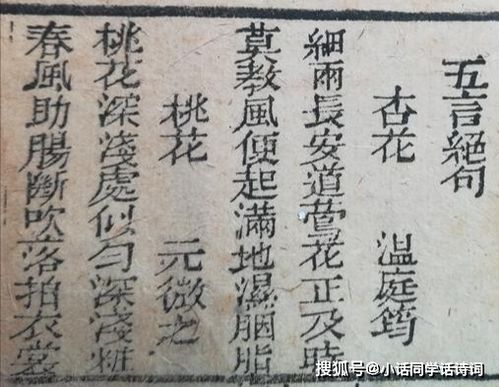 五言絕句
杏花 温庭筠
細雨長安道鶯花正及時
莫教風便起滿地濕胭脂
桃花 元微之
桃花深淺處似匀深淺粧
春風助腸斷吹落拍衣裳
搜狐号@小话同学话诗词